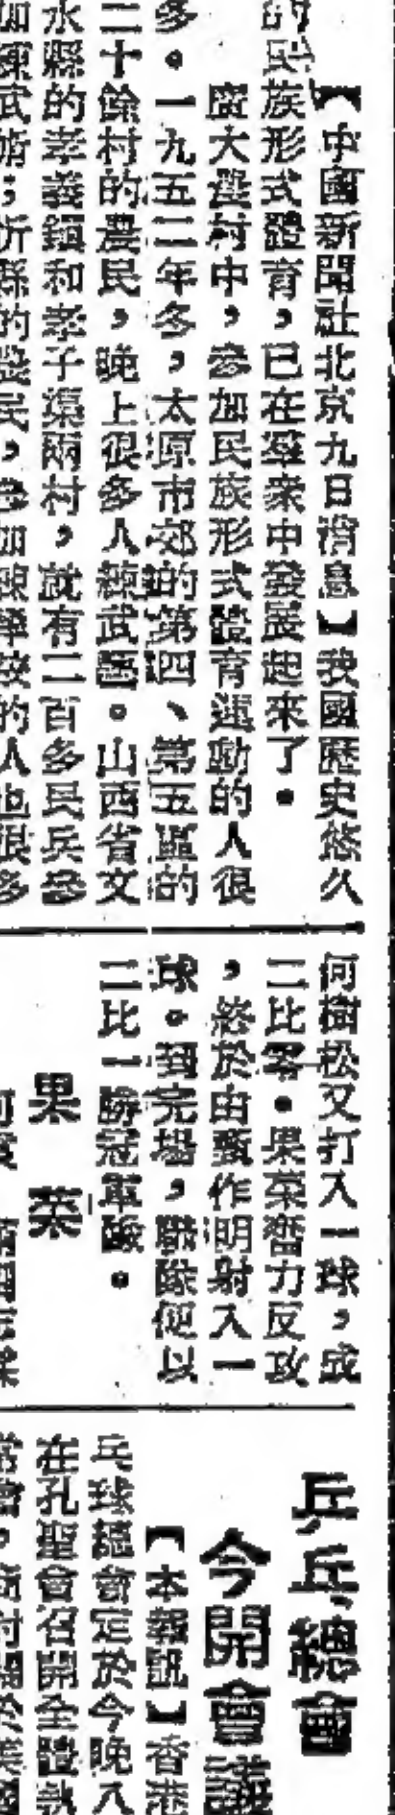 【中國新聞社北京九日消息】我國歷史悠久
的民族形式體育，已在羣衆中發展起來了。
廣大農村中，參加民族形式體育運動的人很
多。一九五二年冬，太原市郊的第四、第五區的
二十餘村的農民，晚上很多人練武區。山西省文
水縣的孝義鎮和孝子渠兩村，就有二百多民兵參
加練武術；忻縣的農民，參加練拳技的人也很多
何樹松又打入一球，成
二比零。果菜奮力反攻
，終於由黎作明射入一
球。到完場，聯隊便以
二比一勝冠軍隊。
果菜
乒乓總會
今開會議
【本報訊】香港
乒球總會定於今晚八
在孔聖會召開全體執